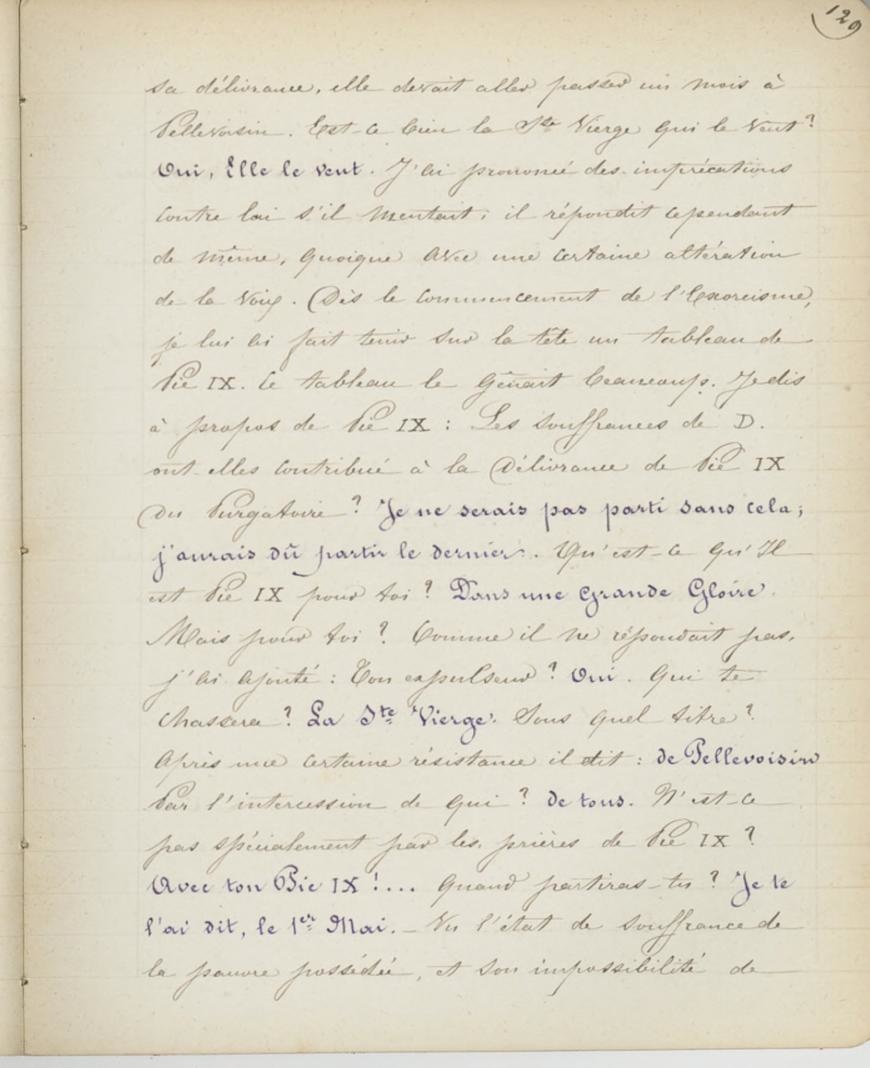 129
sa délivrance, elle devait aller passer un mois à
Pellevoisin. Est-ce bien la Ste Vierge qui le veut ?
Oui, Elle le veut. J'ai prononcé des imprécations
contre lui s'il mentait ; il répondit cependant
de même, quoique avec une certaine altération
de la voix. Dès le commencement de l'Exorcisme,
je lui ai fait tenir sur la tête un tableau de
Pie IX. Ce tableau le gênait beaucoup. Je dis
à propos de Pie IX : Les souffrances de D.
ont-elles contribué à la Délivrance de Pie IX
Du Purgatoire ? Je ne serais pas parti sans cela ;
j'aurais dû partir le dernier. Qu'est-ce qu'Il
est Pie IX pour toi ? Dans une grande Gloire.
Mais pour toi ? Comme il ne répondait pas,
j'ai ajouté : Ton expulseur ? Oui. Qui te
chassera ? La Ste Vierge. Sous quel titre ?
Après une certaine résistance il dit : de Pellevoisin
Par l'intercession de qui ? de tous. N'est-ce
pas spécialement par les prières de Pie IX ?
Avec ton Pie IX !... Quand partiras-tu ? Je te
l'ai dit, le 1er Mai. – Vu l'état de souffrance de
la pauvre possédée, et son impossibilité de